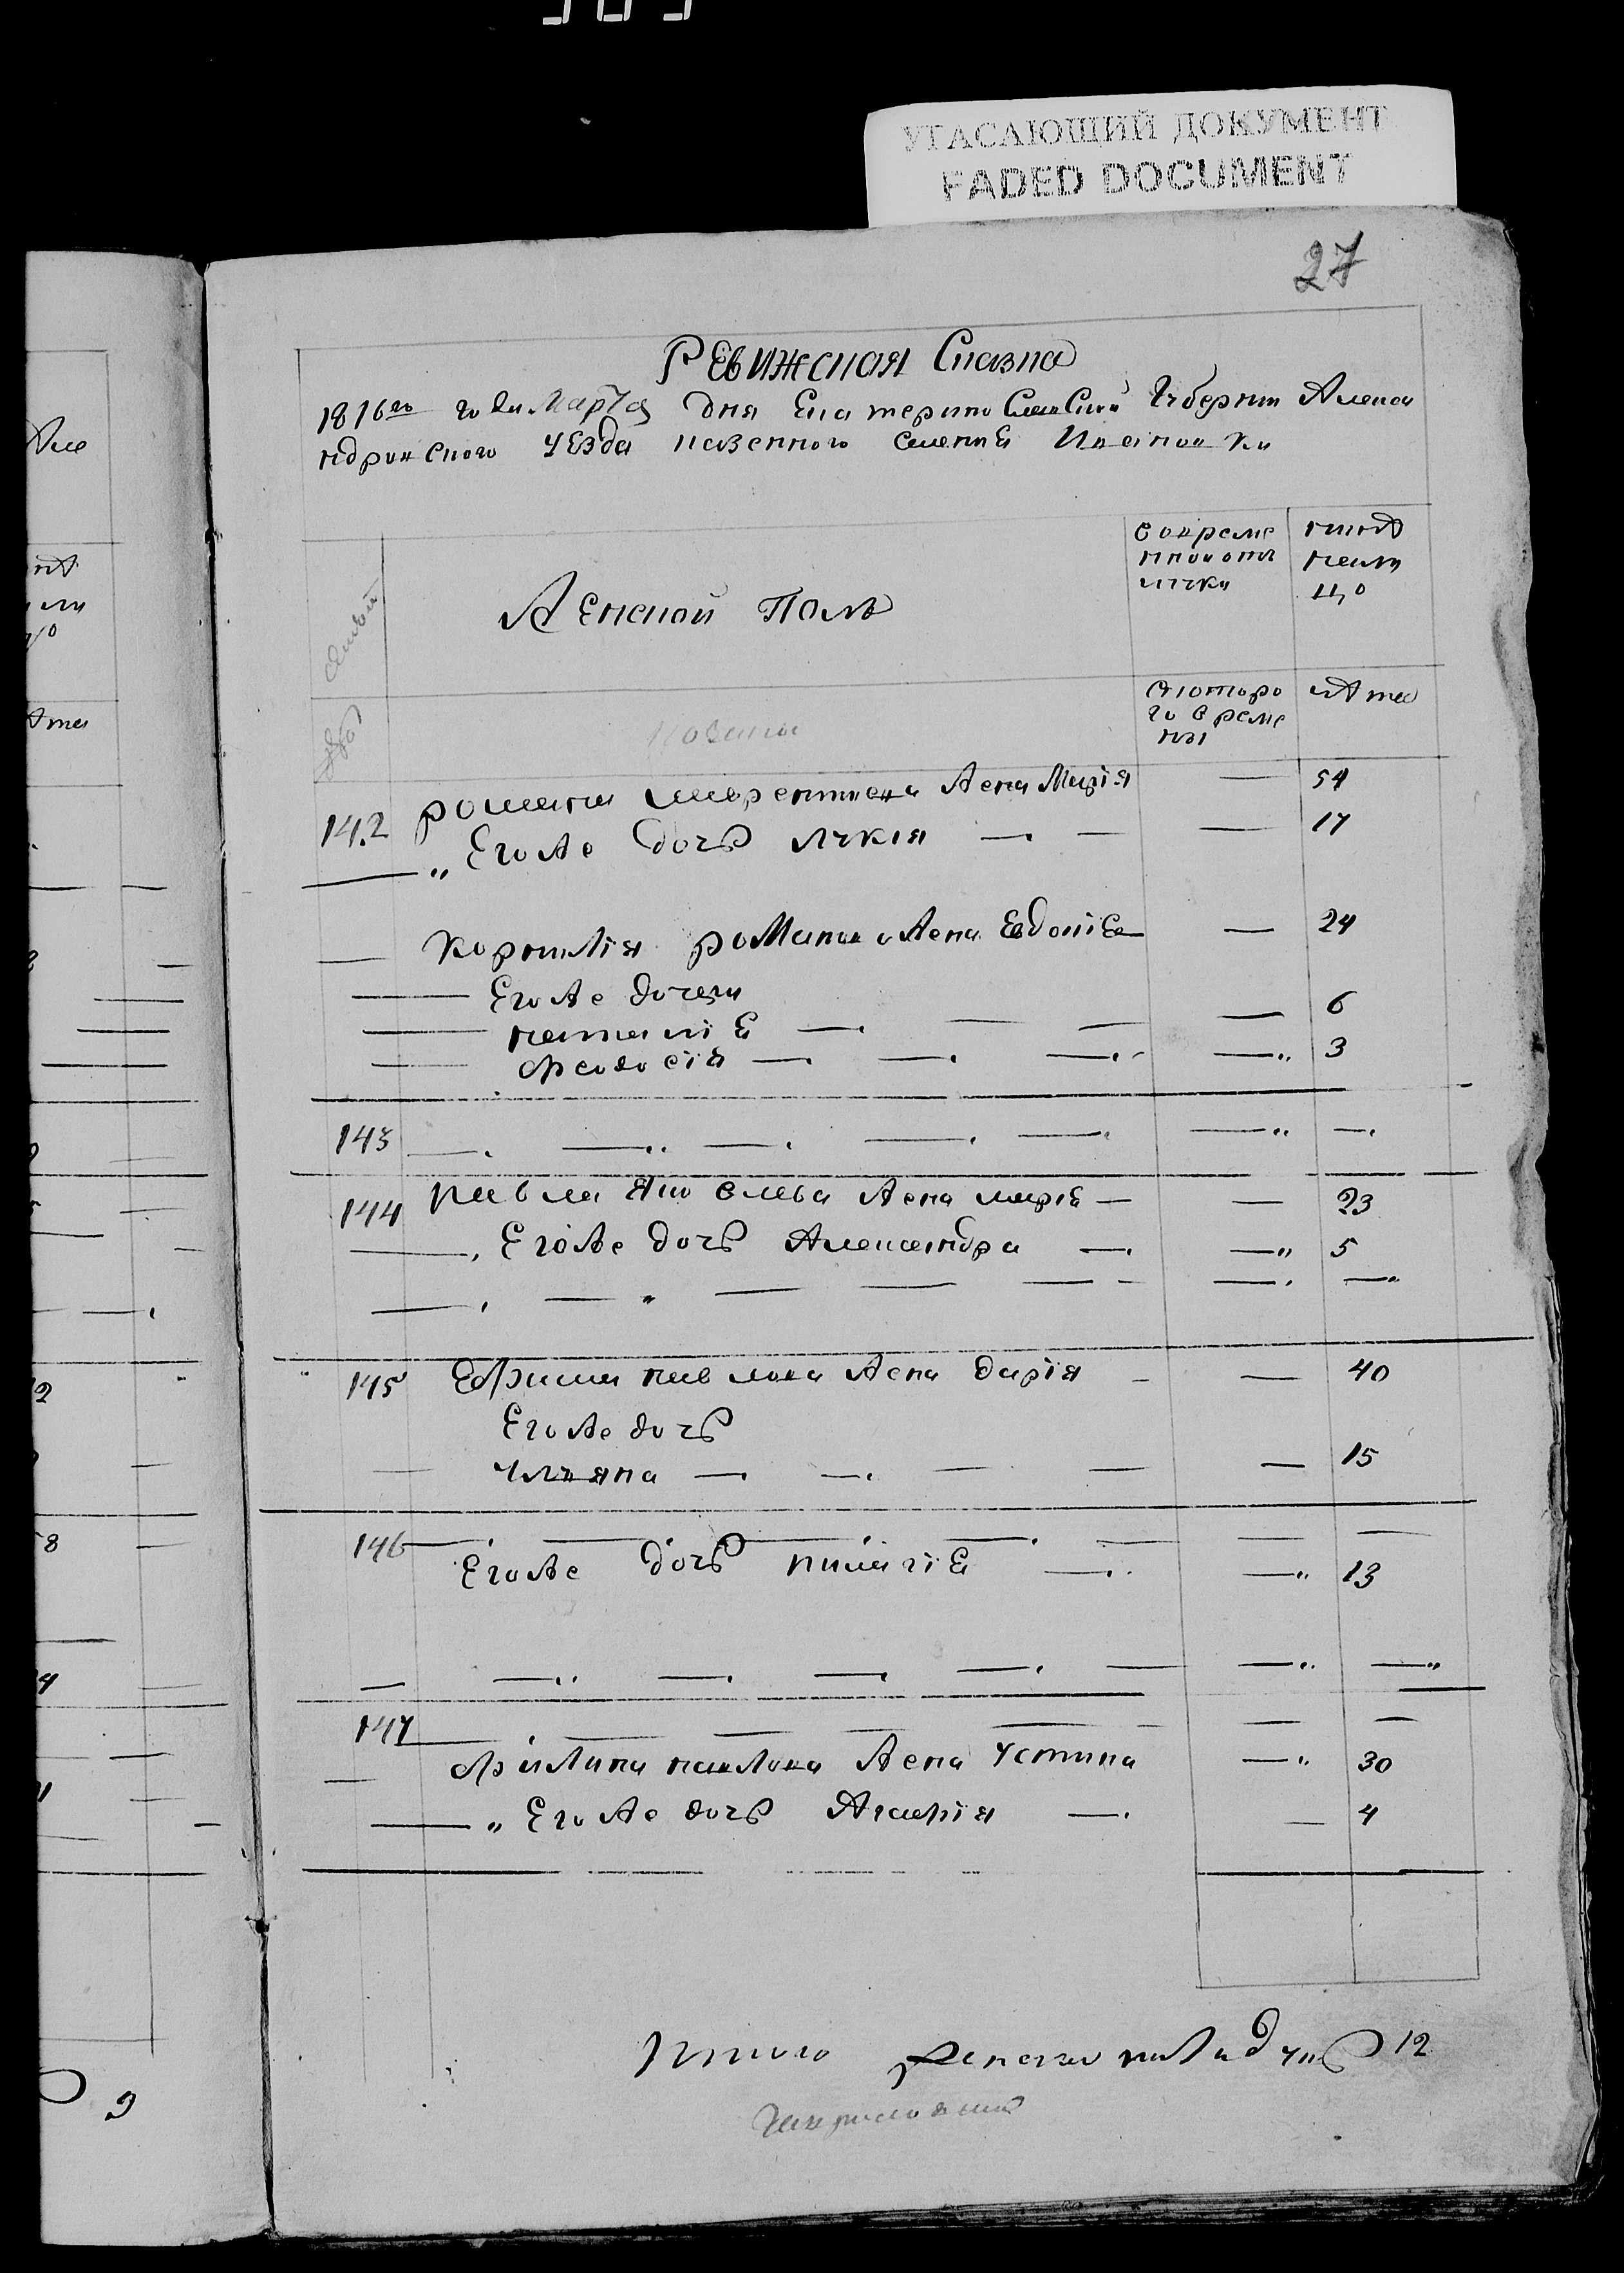 УГАСАЮЩИЙ ДОКУМЕНТ
FADED DOCUMENT
27
Ревижская Сказка
1816го года Марта дня Екатеринославской Губернии Алекса
ндровского уезда казенного селения Ивановки
Семьи
Женской Полъ
вовреме
нной отъ
лучки
ныне
на ли
цо
скоторо
го време
ни
лета
142 романа лаврентиева жена Марія — 54
„ Егоже дочь лукія — — — 17
— корнилія романова жена Евдокіе — 24
— Егоже дочери
— наталіе — — — — 6
— феодосія — — — — 3
143 — — — — — — —
144 павла яковлева жена маріе — — 23
— Егоже дочь Александра — — 5
— — — — — — — —
145 Ефима павлова жена дарія — — 40
Егоже дочь
— улияна — — — — — 15
146 — — — — — — — —
Егоже дочь пилагіе — — 13
— — — — — — — —
147 — — — — — — —
— филипа павлова жена устина — 30
— „ Егоже дочь Агафія — — 4
Итого женска пола душъ 12
9